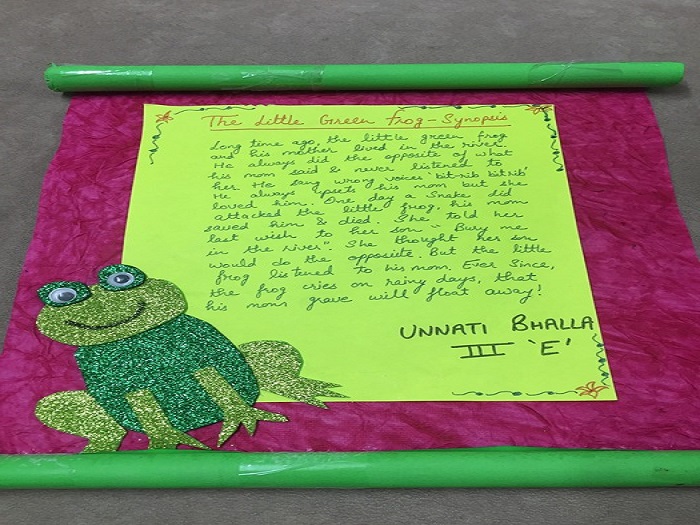 The Little Green frog-Synopsis
Long time ago, the little green frog
and his mother lived in the river.
He always did the opposite of what
his mom said & never listened to
her. He sang wrong voices 'kit-rib kit rib'
He always upsets his mom but she
loved him. One day a Snake did
attacked the little frog, his mom
saved him & died. She told her
last wish to her son "Bury me
in the river". She thought her son
would do the opposite. But the little
frog listened to his mom. Ever Since,
the frog cries on rainy days, that
his mom grave will float away!
UNNATI BHALLA
III 'E'